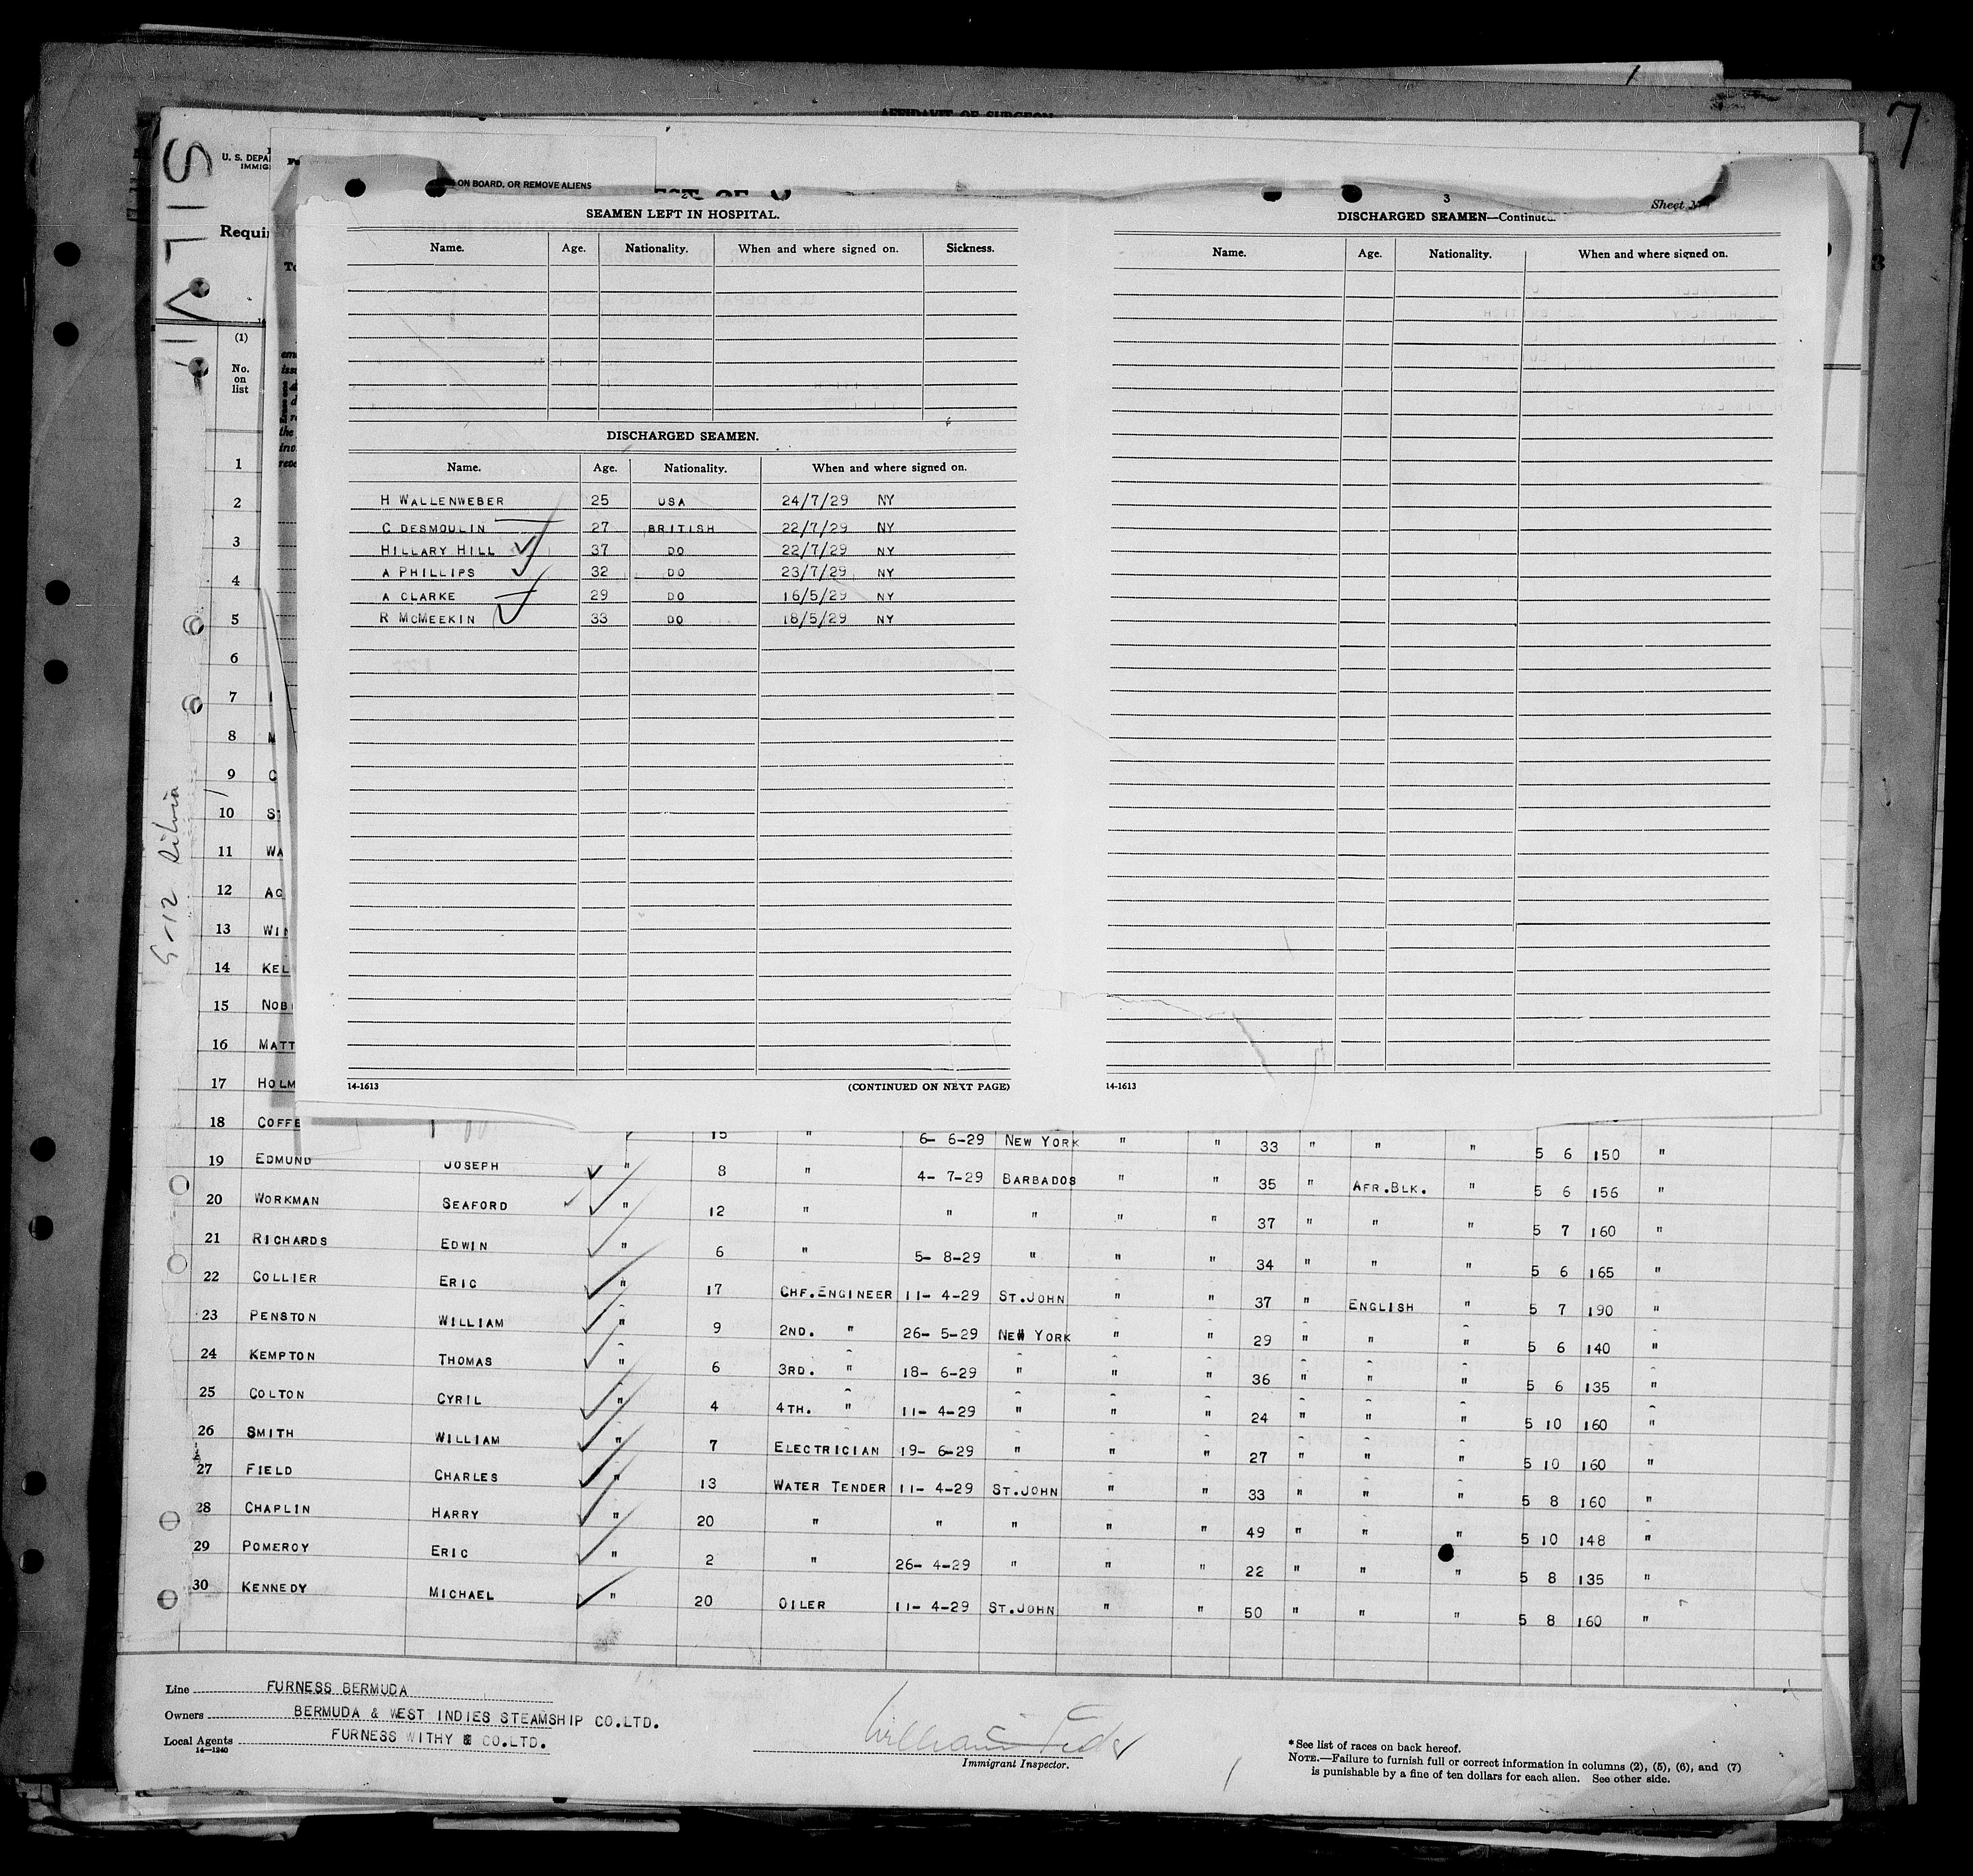 AFFIDAVIT OF SURGEON
7
SILVI
U. S. DEPA
IMMIG
ON BOARD, OR REMOVE ALIENS
Requi
2
SEAMEN LEFT IN HOSPITAL.
Name. Age. Nationality. When and where signed on. Sickness.
3
Sheet N
DISCHARGED SEAMEN—Continued.
Name. Age. Nationality. When and where signed on.
DISCHARGED SEAMEN.
Name. Age. Nationality. When and where signed on.
H WALLENWEBER 25 USA 24/7/29 NY
C DESMOULIN 27 BRITISH 22/7/29 NY
HILLARY HILL 37 DO 22/7/29 NY
A PHILLIPS 32 DO 23/7/29 NY
A CLARKE 29 DO 16/5/29 NY
R MCMEEKIN 33 DO 18/5/29 NY
14-1613 (CONTINUED ON NEXT PAGE)
14-1613
(1)
No. on list
1
2
3
4
5
6
7
8 M
9 C
10 S
11 WA
12 AG
13 WI
14 KEL
15 NOB
16 MATT
17 HOLM
18 COFFE 15 " 6- 6-29 NEW YORK " " 33 " " " 5 6 150 "
19 EDMUND JOSEPH " 8 " 4- 7-29 BARBADOS " " 35 " AFR.BLK. " 5 6 156 "
20 WORKMAN SEAFORD " 12 " " " " " 37 " " " 5 7 160 "
21 RICHARDS EDWIN " 6 " 5- 8-29 " " " 34 " " " 5 6 165 "
22 COLLIER ERIC " 17 CHF.ENGINEER 11- 4-29 ST.JOHN " " 37 " ENGLISH " 5 7 190 "
23 PENSTON WILLIAM " 9 2ND. " 26- 5-29 NEW YORK " " 29 " " " 5 6 140 "
24 KEMPTON THOMAS " 6 3RD. " 18- 6-29 " " " 36 " " " 5 6 135 "
25 COLTON CYRIL " 4 4TH. " 11- 4-29 " " " 24 " " " 5 10 160 "
26 SMITH WILLIAM " 7 ELECTRICIAN 19- 6-29 " " " 27 " " " 5 10 160 "
27 FIELD CHARLES " 13 WATER TENDER 11- 4-29 ST.JOHN " " 33 " " " 5 8 160 "
28 CHAPLIN HARRY " 20 " " " " " 49 " " " 5 10 148 "
29 POMEROY ERIC " 2 " 26- 4-29 " " " 22 " " " 5 8 135 "
30 KENNEDY MICHAEL " 20 OILER 11- 4-29 ST.JOHN " " 50 " " " 5 8 160 "
Silvia
Line FURNESS BERMUDA
Owners BERMUDA & WEST INDIES STEAMSHIP CO.LTD.
Local Agents FURNESS WITHY & CO.LTD.
14-1240
William
Immigrant Inspector.
* See list of races on back hereof.
NOTE.—Failure to furnish full or correct information in columns (2), (5), (6), and (7)
is punishable by a fine of ten dollars for each alien. See other side.